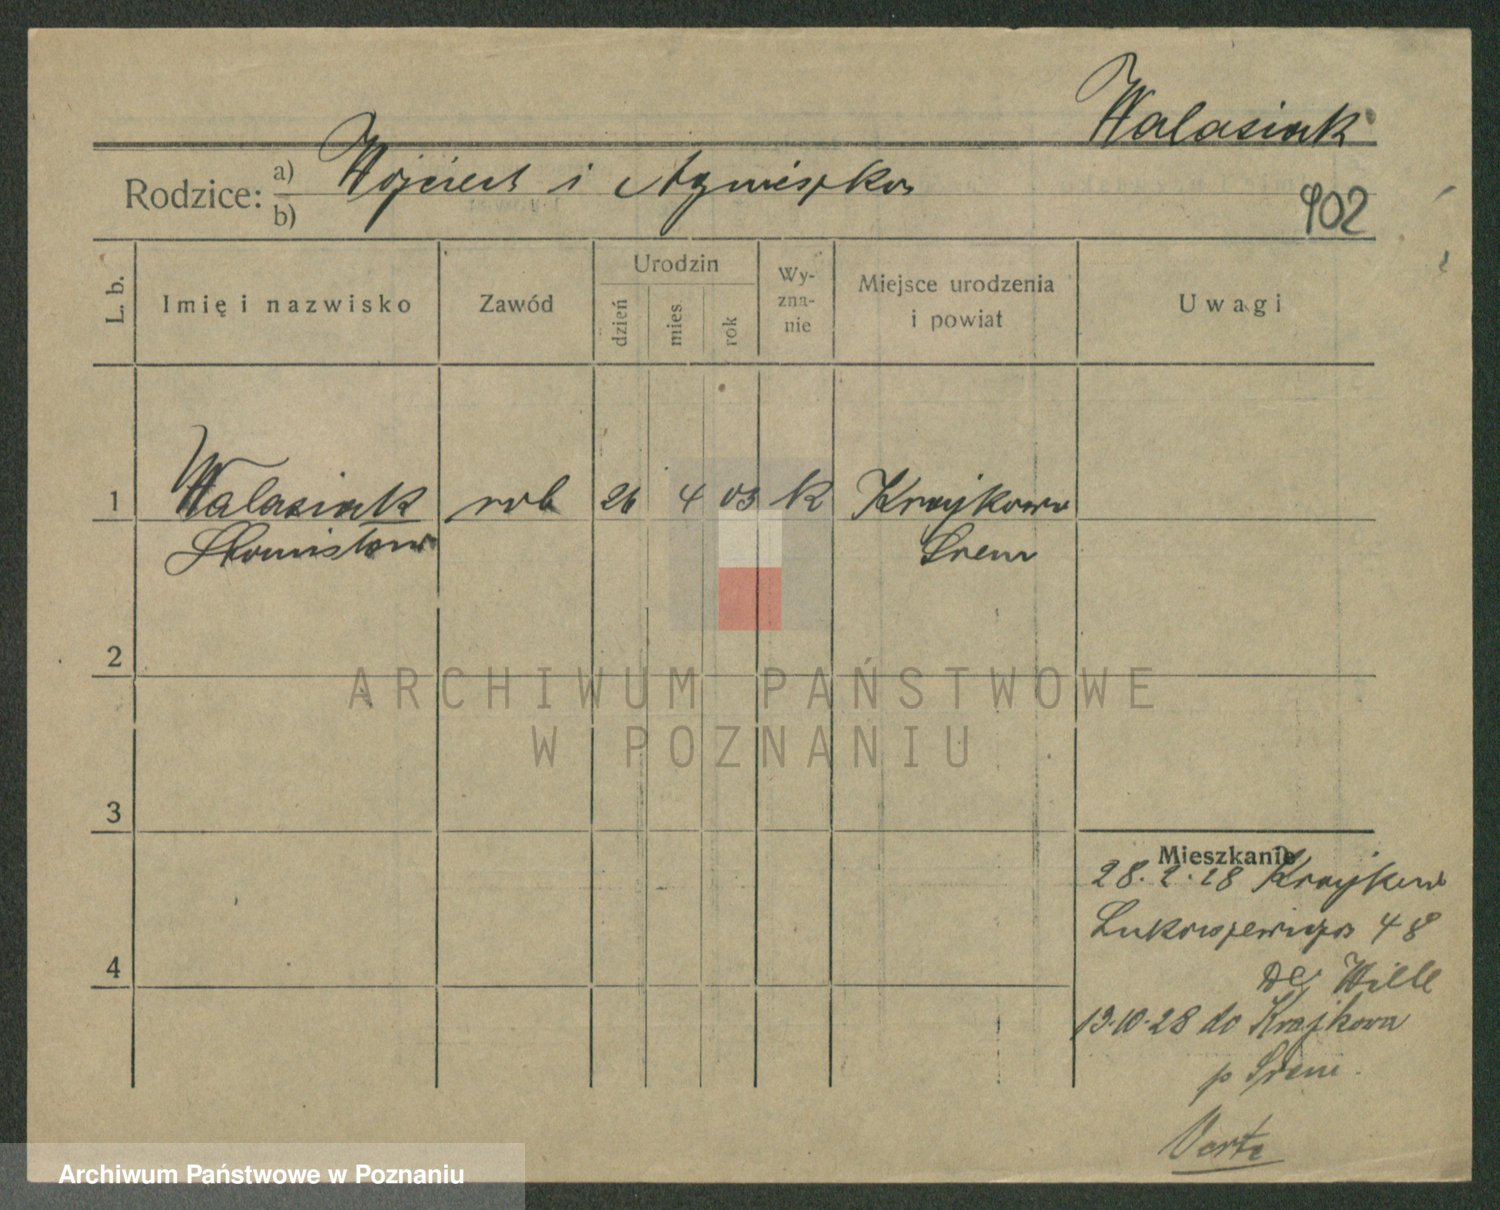 Walasiak
Rodzice: a) Wojciech i Agnieszka
b)
902
L. b.
Imię i nazwisko
Zawód
Urodzin
dzień
mies
rok
Wy-
zna-
nie
Miejsce urodzenia
i powiat
Uwagi
1 Walasiak rob 26 4 03 K Krajkowo
Stanisław Śrem
2
3
4
Mieszkanie
28.2.28 Krajkowo
Łukaszewicza 48
Wille
13.10.28 do Krajkowa
p Śrem
Verte
ARCHIWUM PAŃSTWOWE
W POZNANIU
Archiwum Państwowe w Poznaniu